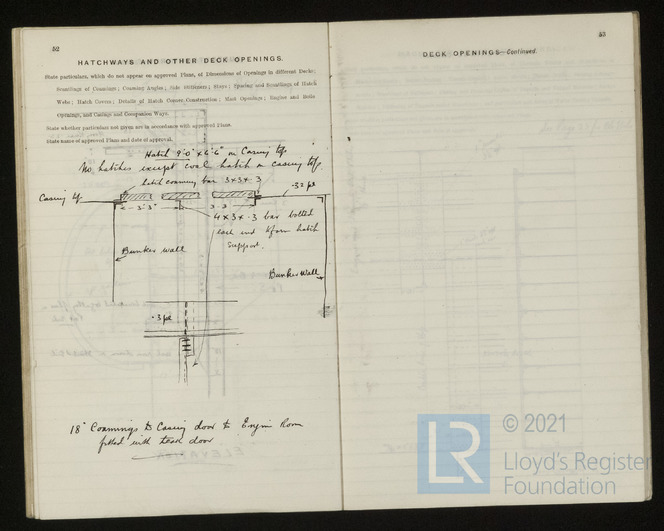 52
HATCHWAYS AND OTHER DECK OPENINGS.
State particulars, which do not appear on approved Plans, of Dimensions of Openings in different Decks;
Scantlings of Coamings; Coaming Angles; Side Stiffeners; Stays; Spacing and Scantlings of Hatch
Webs; Hatch Covers; Details of Hatch Covers Construction; Mast Openings; Engine and Boiler
Openings, and Casings and Companion Ways.
State whether particulars not given are in accordance with approved Plans.
State name of approved Plans and date of approval.
Hatch 9'0" x 6'6" on Casing top
No hatches except coal hatch on casing top.
hatch coaming bar 3x3x.3
Casing top
.32 pl
3'.3"
3.3
4x3x.3 bar bolted
each end to form hatch
support.
Bunker wall
Bunker Wall
.3 pl
18" Coamings to Casing door to Engine Room
fitted with teak door
53
DECK OPENINGS—Continued.
LR
© 2021
Lloyd's Register
Foundation